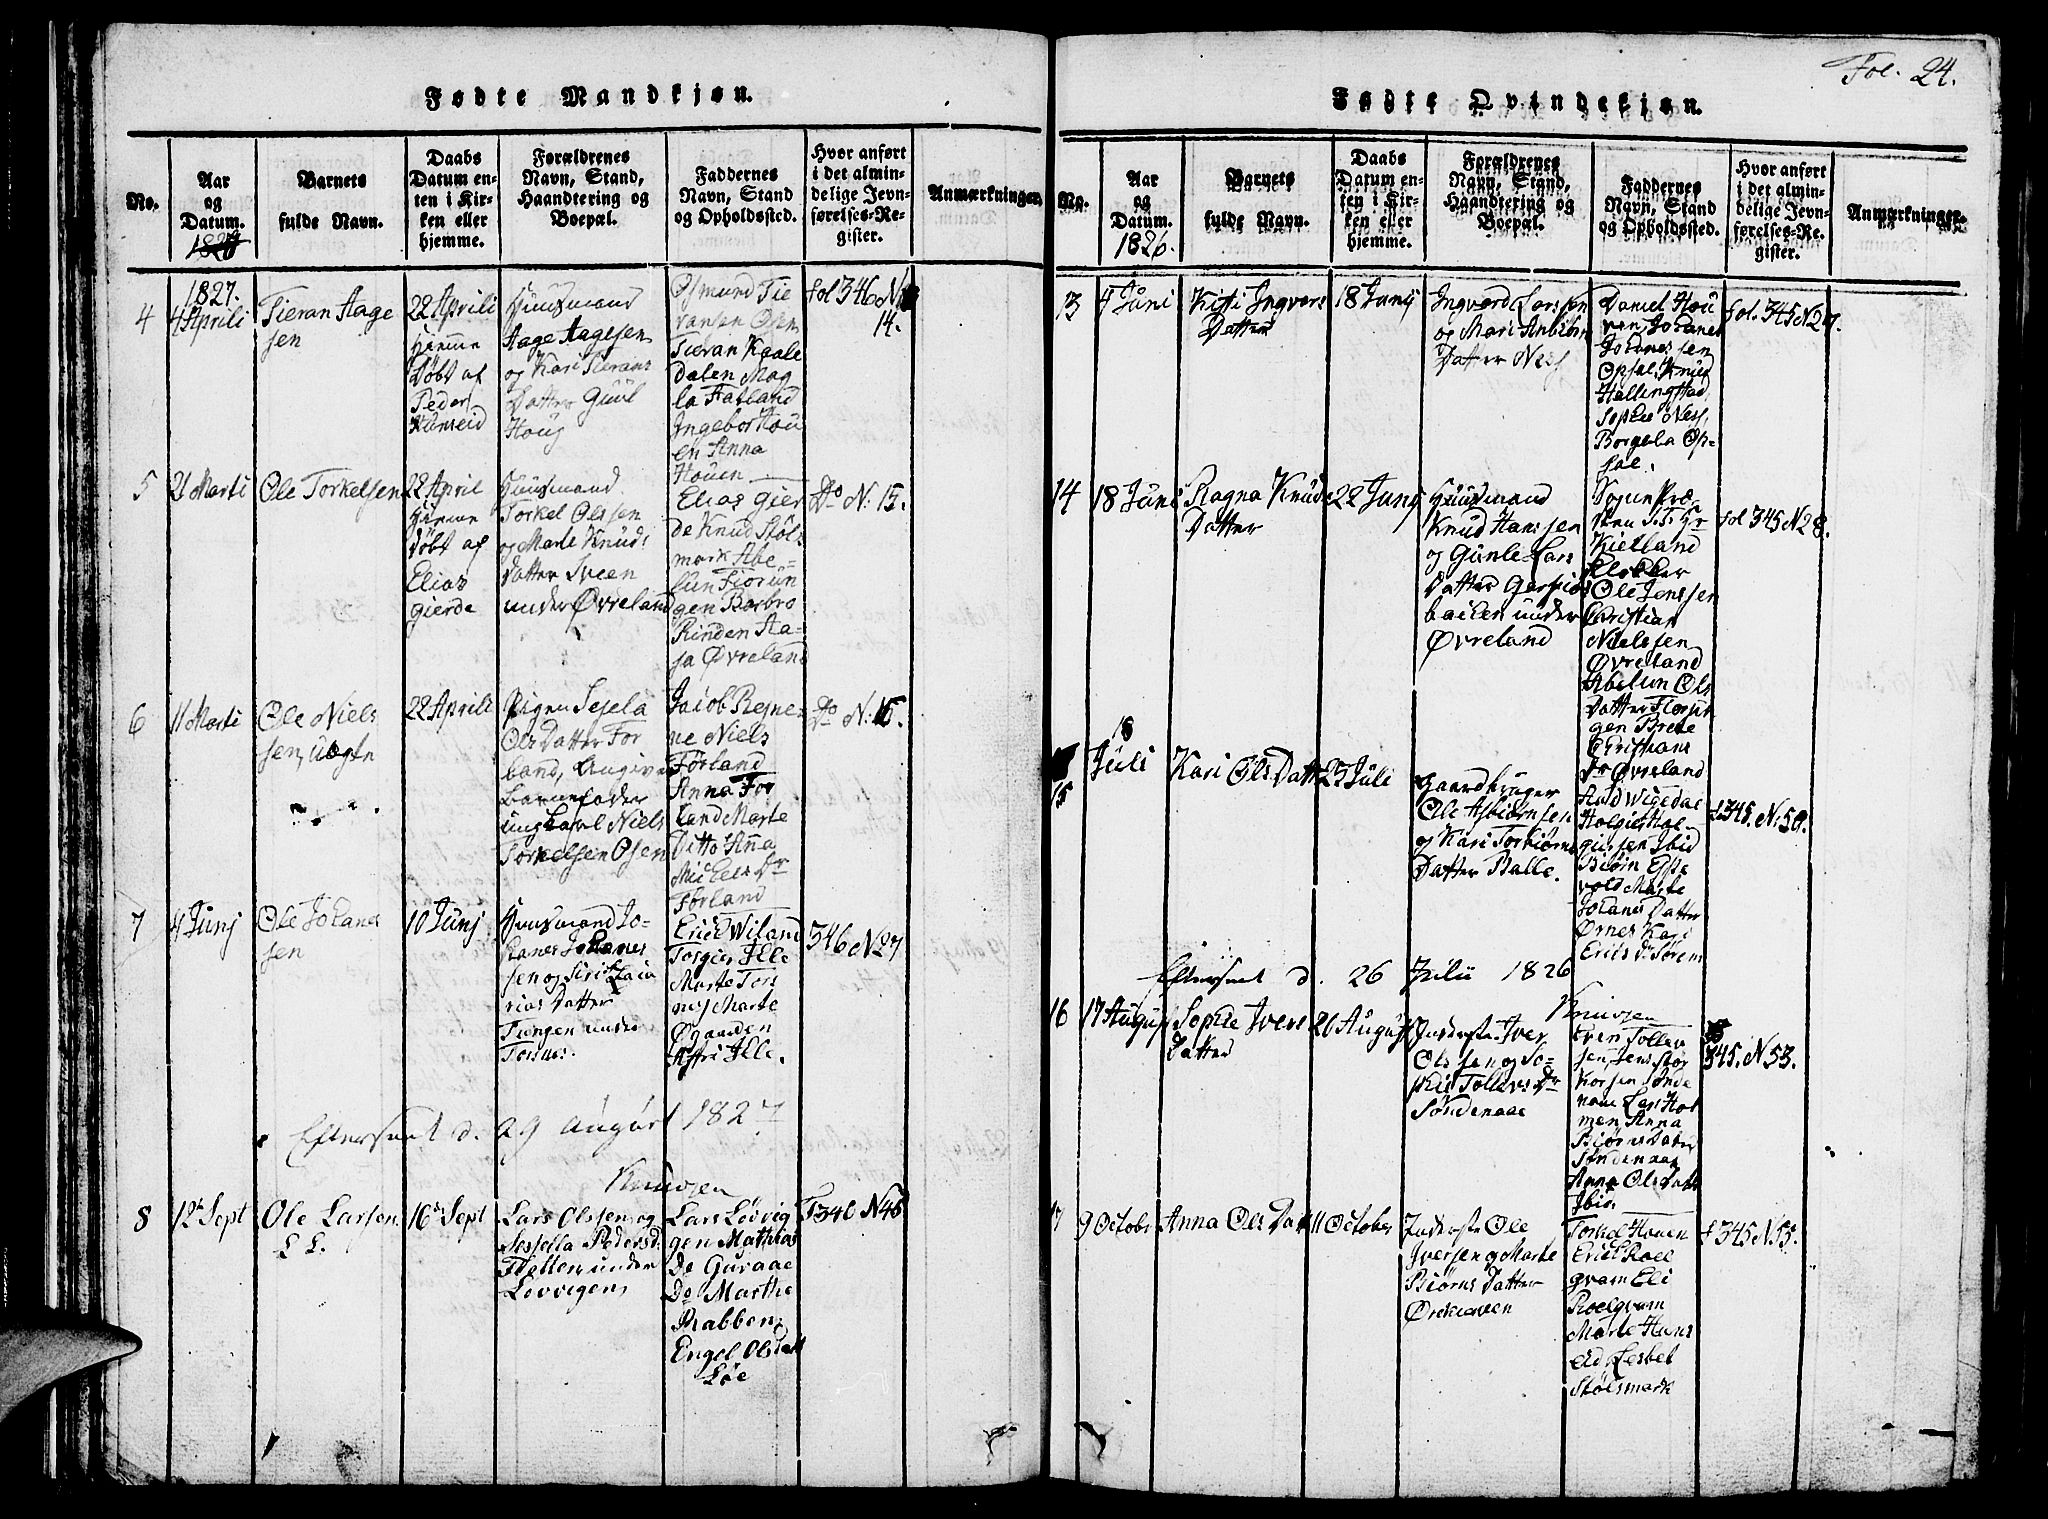 Fødte Mandkjøn.
No.
Aar
og
Datum.
1827
Barnets
fulde Navn.
Daabs
Datum en-
ten i Kir-
ken eller
hjemme.
Forældrenes
Navn, Stand,
Haandtering og
Boepæl.
Faddernes
Navn, Stand
og Opholdssted.
Hvor anført
i det almin-
delige Jevn-
førelses-Re-
gister.
Anmærkninger.
4
1827.
4 Aprili
Tieran Aage
sen
22 Aprili
Hiemme
døbt af
Peder
Huusmand
Aage Aagesen
og Kari Tierans
Datter
Houg
Osmund Tie
ransen Osen
Tieran Kaale
Dalen Mag
la Fatland
Ingebor Hou
en Anna
Houen
fol 346 N
14.
5
21 Marti
Ole Torkelsen
22 April
Hiemme
døbt af
Elias
gierde
Huusmand
Torkel Olssen
og Marte Knuds
Datter Sveen
under Øvreland
Elias Gier
de Knud Støls
mark Abe-
lun Fiorun
gen Barbro
Rinden Aa-
sa Øvreland
Do N. 15.
6
11 Marti
Ole Niels
sen, uægte
22 Aprili
Pigen Sesela
Ols Datter For
land, Angiven
Barnefader
ungkarl Niels
Torkelsen Osen
Jacob Regne
ne Niels
Førland
Anna For
land Marte
Ditto Anna
Michels Dr
Førland
Do N. 16.
7
4 Junj
Ole Johanes
sen
10 Junj
Huusmand Jo-
hanes Johanes
sen og Siri
rias Datter
Tungen under
Tornes.
Erich Wiland
Torgier Ille
Marte Tors
nes Marte
Øgaarden
Ille.
346 N 27
Efterseet d. 29 August 1827
Knudsen
8
12te Sept
Ole Larsen.
16de Sept
Lars Olssen og
Sesella Pedersd.
Flotten under
Lovvigen
Lars Løvvig
gen Mathias
Do Guraae
Do Marthe
Rabben
Engel Olsdatt
Løe
F 346 N 46
Fol. 24.
Fødte Qvindekjøn.
No.
Aar
og
Datum.
1826.
Barnets
fulde Navn.
Daabs
Datum en-
ten i Kir-
ken eller
hjemme.
Forældrenes
Navn, Stand,
Haandtering og
Boepæl.
Faddernes
Navn, Stand
og Opholdssted.
Hvor anført
i det almin-
delige Jevn-
førelses-Re-
gister.
Anmærkninger.
13
Juni
Kisti Ingvors
Datter
18 Junij
Ingvord Larssen
og Mari Anbiørn
Datter Ness
Daniel Hou
gen, Johanes
Johanessen
Opsal, Knud
Hallingstad,
Sophie Ness,
Borgela Op-
sal.
fol. 345 N 27.
14
18 Juni
Ragna Knuds
Datter
22 Junij
Huusmand
Knud Hanssen
og Gunle Lars
Datter
under
Øvreland
Sogne Præ-
sten Hr
Kielland
Klokker
Ole Jenssen
Christian
Nielssen
Øvreland
Abelun Ols
Datter Fiorun
gen Brete
Christians
Dr Øvreland
fol 345 N 28.
15
18
Juli
Kari Ols Datt
23 Juli
gaardbruger
Ole Asbiørnsen
og Kari Torbiørns
Datter Balle.
Aad Wigedae
Holgier Hol
giersen Ibid
Biørn Espe
vold Marte
Johanes Datter
Ørnes Kari
Erics Dr Sørem
f. 345. N. 50.
Efterseet d. 26 Julii 1826
Knudsen
16
17 August
Sophie Ivers
Datter
26 August
Inderste Iver
Olssen og So-
phie Tollevs Dr
Søndenaae
Even Tollev
sen, Jens Stør
korsen Sønde
naae Lars Hol
men Anna
Biørns Datter
Søndenaae
Anna Ols Datt
Ibid.
345. N 53.
17
9 October
Anna Ols Datt
11 October
Inderste Ole
Iversen og Marte
Biørns Datter
Torkel Houen
Erich Roel
qvam Eli
Roelqvam
Marte Huns
eid Lesbet
Stølsmark
f 345 N 55.